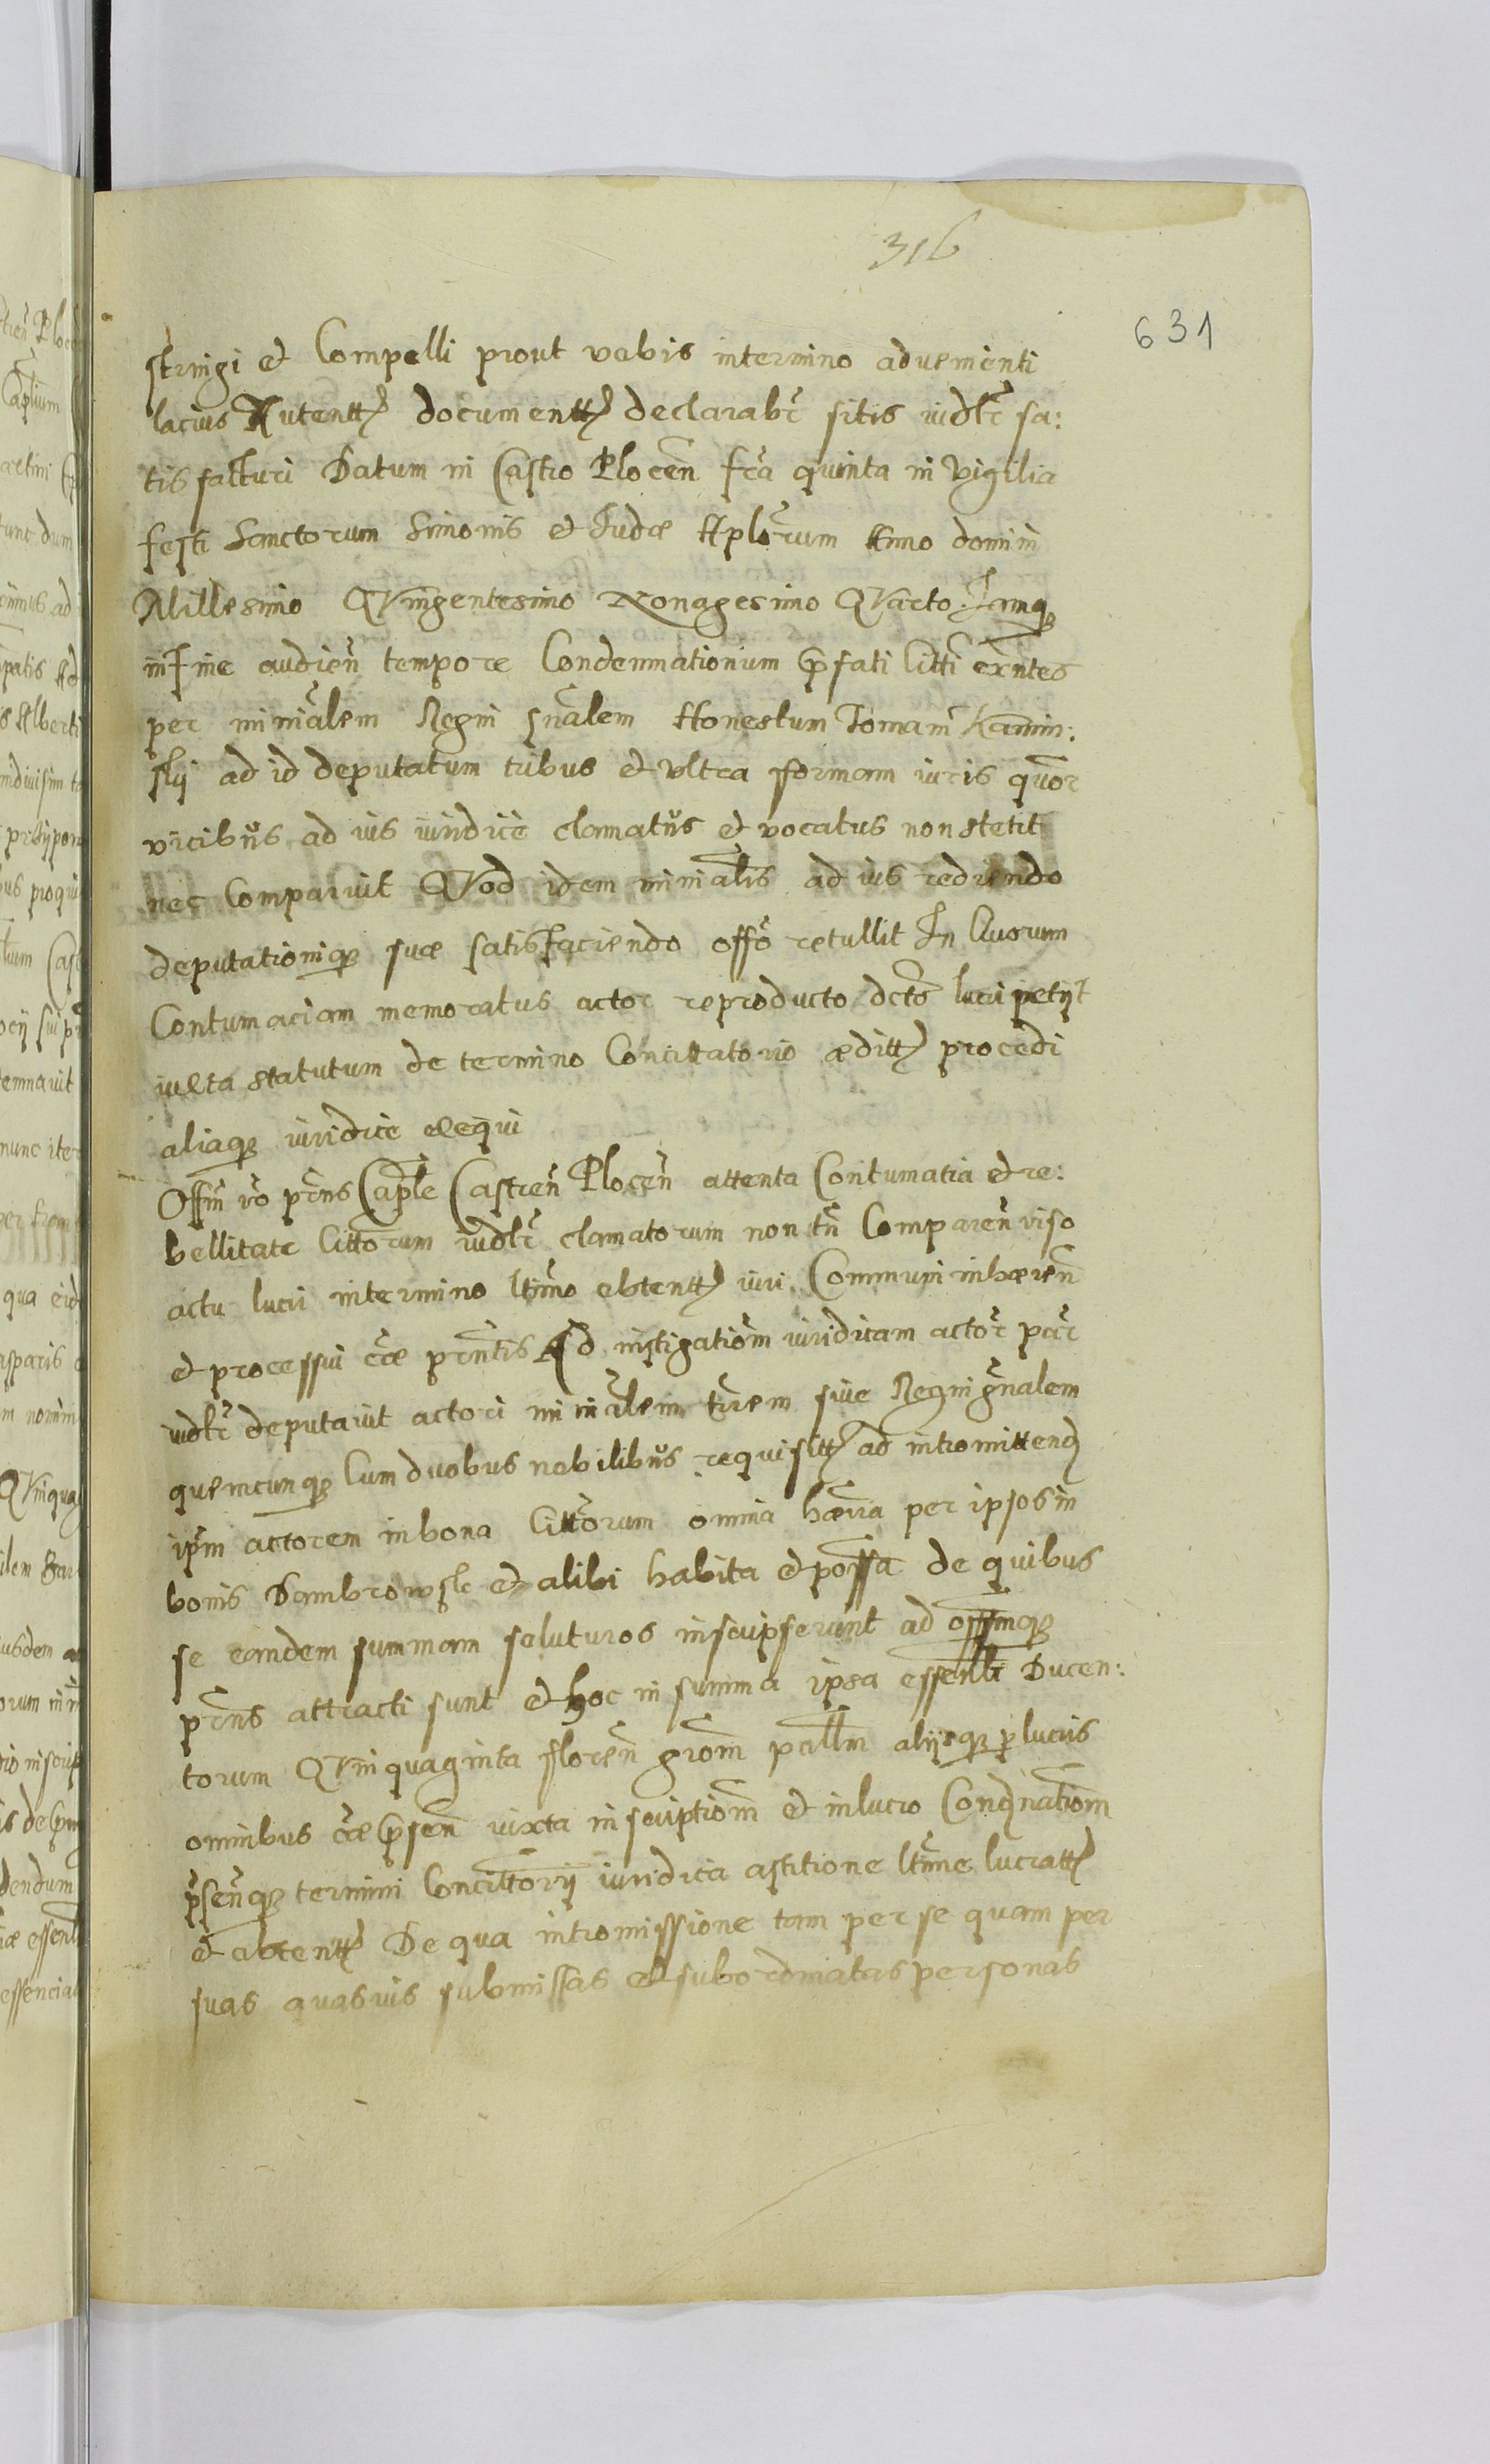 316
631
stringi et Compelli prout vobis intermino advenienti
lacius Autentt documentt declarabr sitis iudlr sa:
tis facturi Datum in Castro Plocen fra quinta in vigilia
festi Sanctorum Simonis et Judæ Aplorum Anno domini
Millesimo QVingentesimo Nonagesimo QVarto. Jamq
in fine audien tempore Condemnationum Prfati Citti exntes
per minialem Regni gnalem Honestum Tomam Kamin:
skij ad id deputatum tribus et vltra formam iuris quor
vicibus ad ius iuridice clamatus et vocatus non stetit
nec Comparuit QVod idem minialis ad ius rediendo
deputationiq suæ satisfaciendo offo retullit In Quorum
Contumaciam memoratus actor reproducto dcto lucri petijt
iuxta statutum de termino Concittatorio æditt procedi
aliaq iuridice exequi
Offm vo prns Caple Castren Plocen attenta Contumatia et re:
bellitate Cittorum iudlr clamatorum non tn Comparen viso
actu lucri intermino ltimo obtentt iuri Communi inhæren
et processui cæ prntis Ad instigatiom iuridicam actor par
iudlr deputavit actori minialem trem sive Regni gnalem
quemcunq Cum duobus nobilibus requisitt ad intromittend
ipm actorem in bona Cittorum omnia hæria per ipsos in
bonis Dambrowsk et alibi habita et possa de quibus
se eandem summam soluturos inscripserunt ad offmq
prns attracti sunt et hoc in summa ipsa essenlli Ducen:
torum QVinquaginta floren grom pcllm alijsq p lucris
omnibus cæ Prsen iuxta inscriptiom et in lucro Condnatiom
prsenq termini Concittorij iuridica astitione ltime lucratt
et obtentt De qua intromissione tam per se quam per
suas quasvis submissas et subordinatas personas